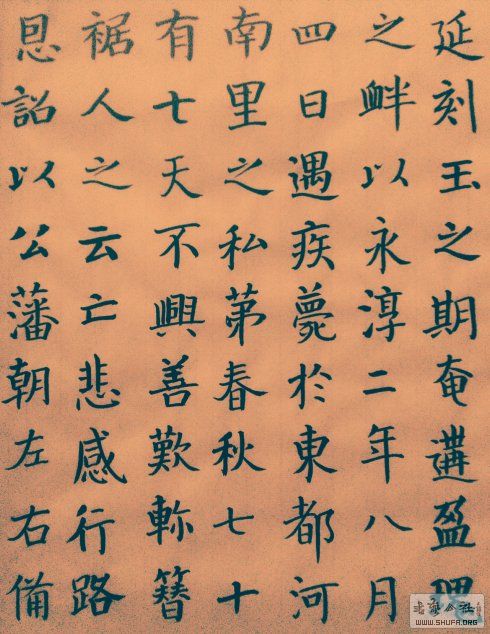 延刻玉之期奄遘盈
之衅以永淳二年八月
四日遇疾薨於東都河
南里之私苐春秋七十
有七天不興善歎軫簪
裾人之云亡悲感行路
恩詔以公藩朝左右備
WWW.SHUFA.ORG